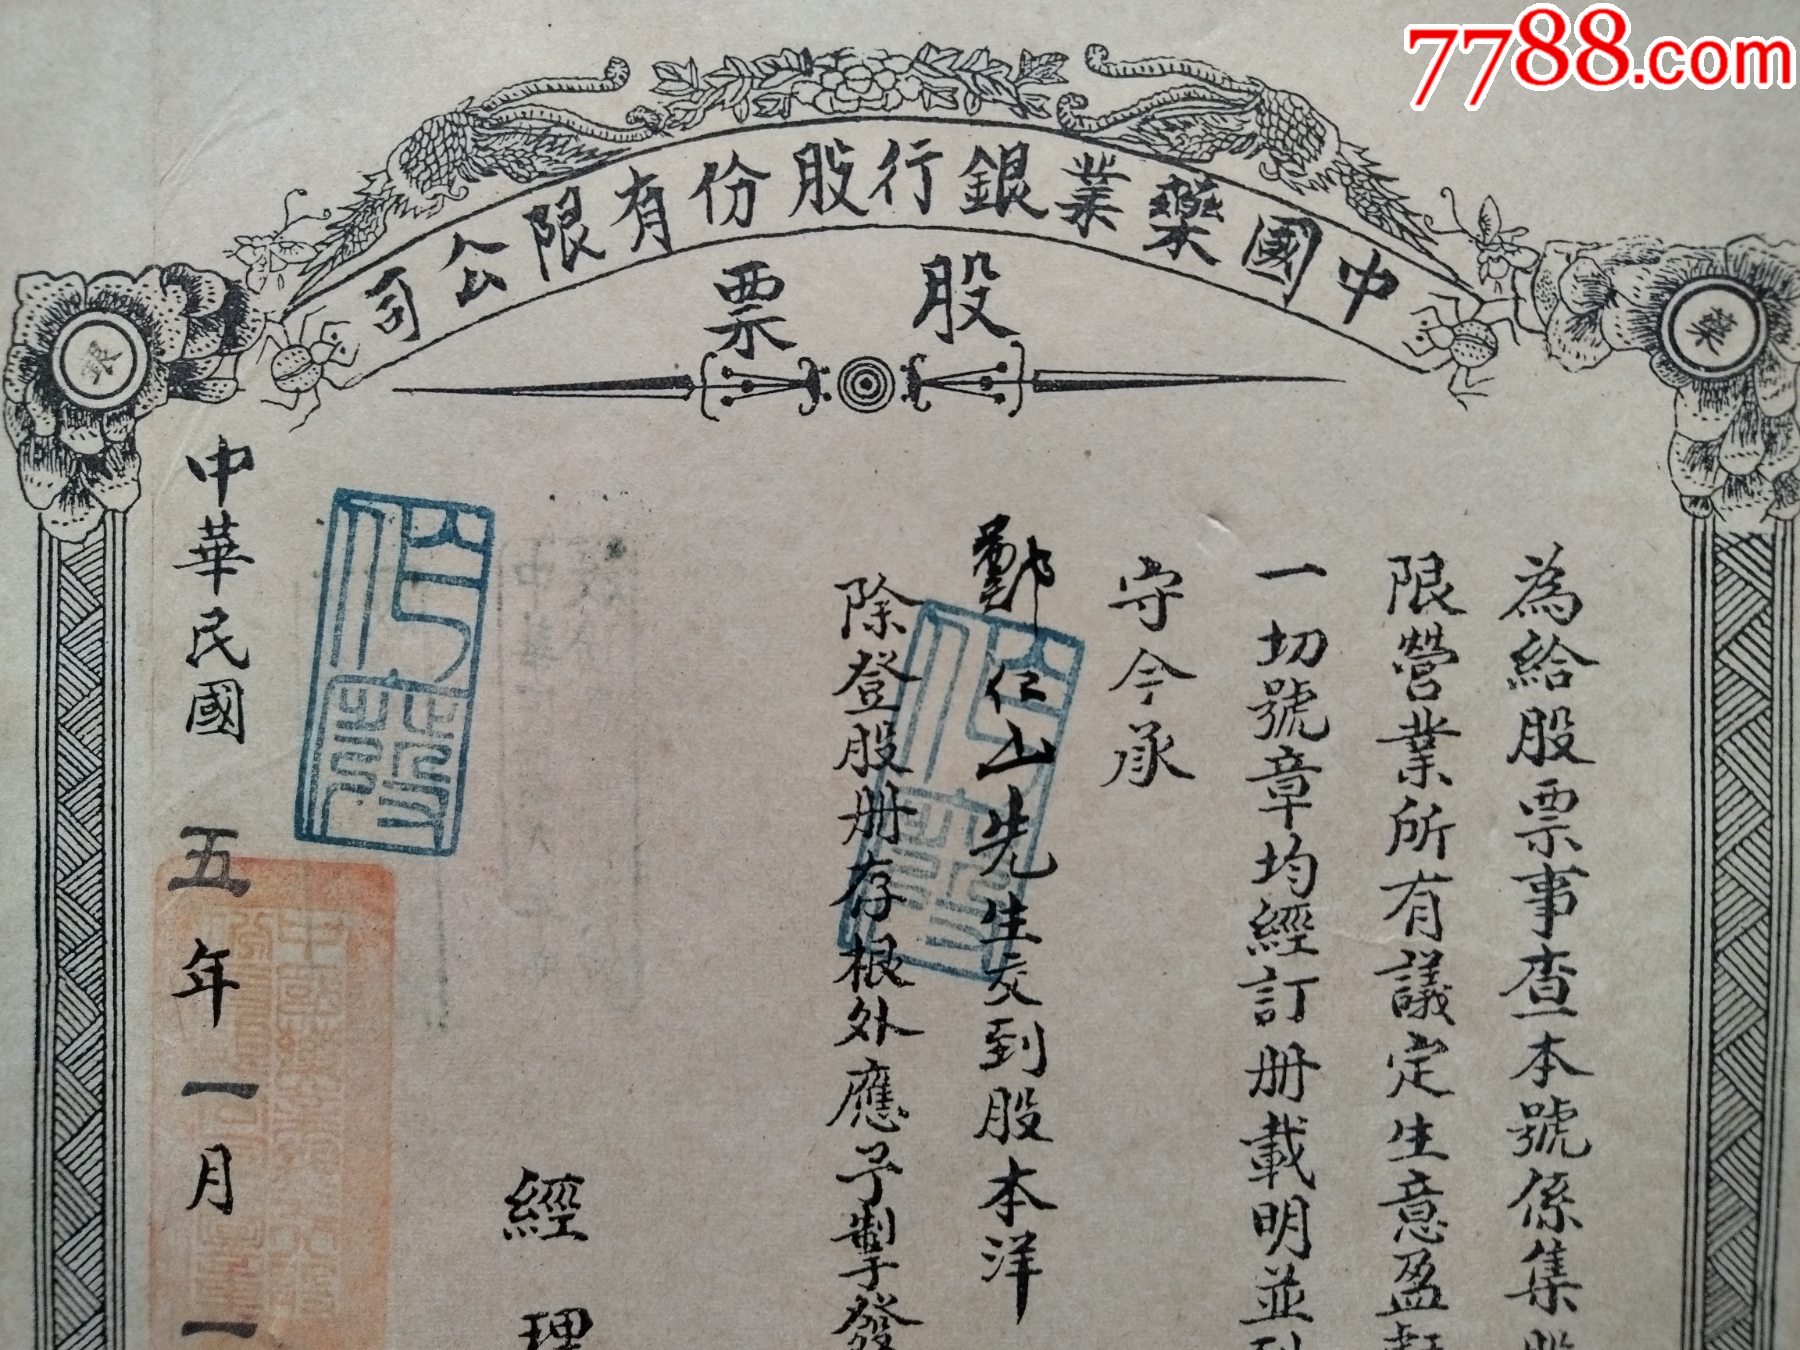 7788.com
中國藥業銀行股份有限公司
股票
藥
銀
為給股票事查本號係集股
限營業所有議定生意盈
一切號章均經訂册載明並
守今承
鄭仁山先生交到股本洋
除登股册存根外應予掣發
經理
中華民國五年一月一